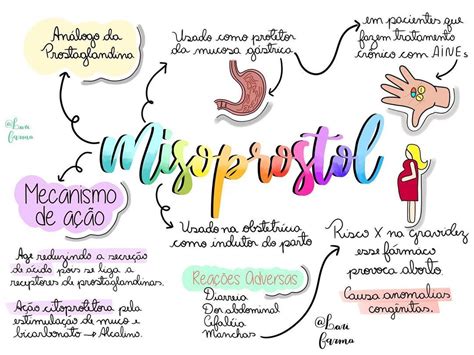 Análogo da
Prostaglandina
Usado como protetor
da mucosa gástrica
em pacientes que
fazem tratamento
crônico com AINEs
@Lari
farma
Misoprostol
Mecanismo
de ação
Age reduzindo a secreção
de ácido pois se liga a
receptores de prostaglandinas.
Ação citoprotetora pela
estimulação de muco e
bicarbonato → Alcalino.
Usado na obstetrícia
como indutor do parto
Reações Adversas
Diarreia
Dor abdominal
Cefaléia
Manchas
Risco X na gravidez
esse fármaco
provoca aborto.
Causa anomalias
congênitas.
@Lari
farma